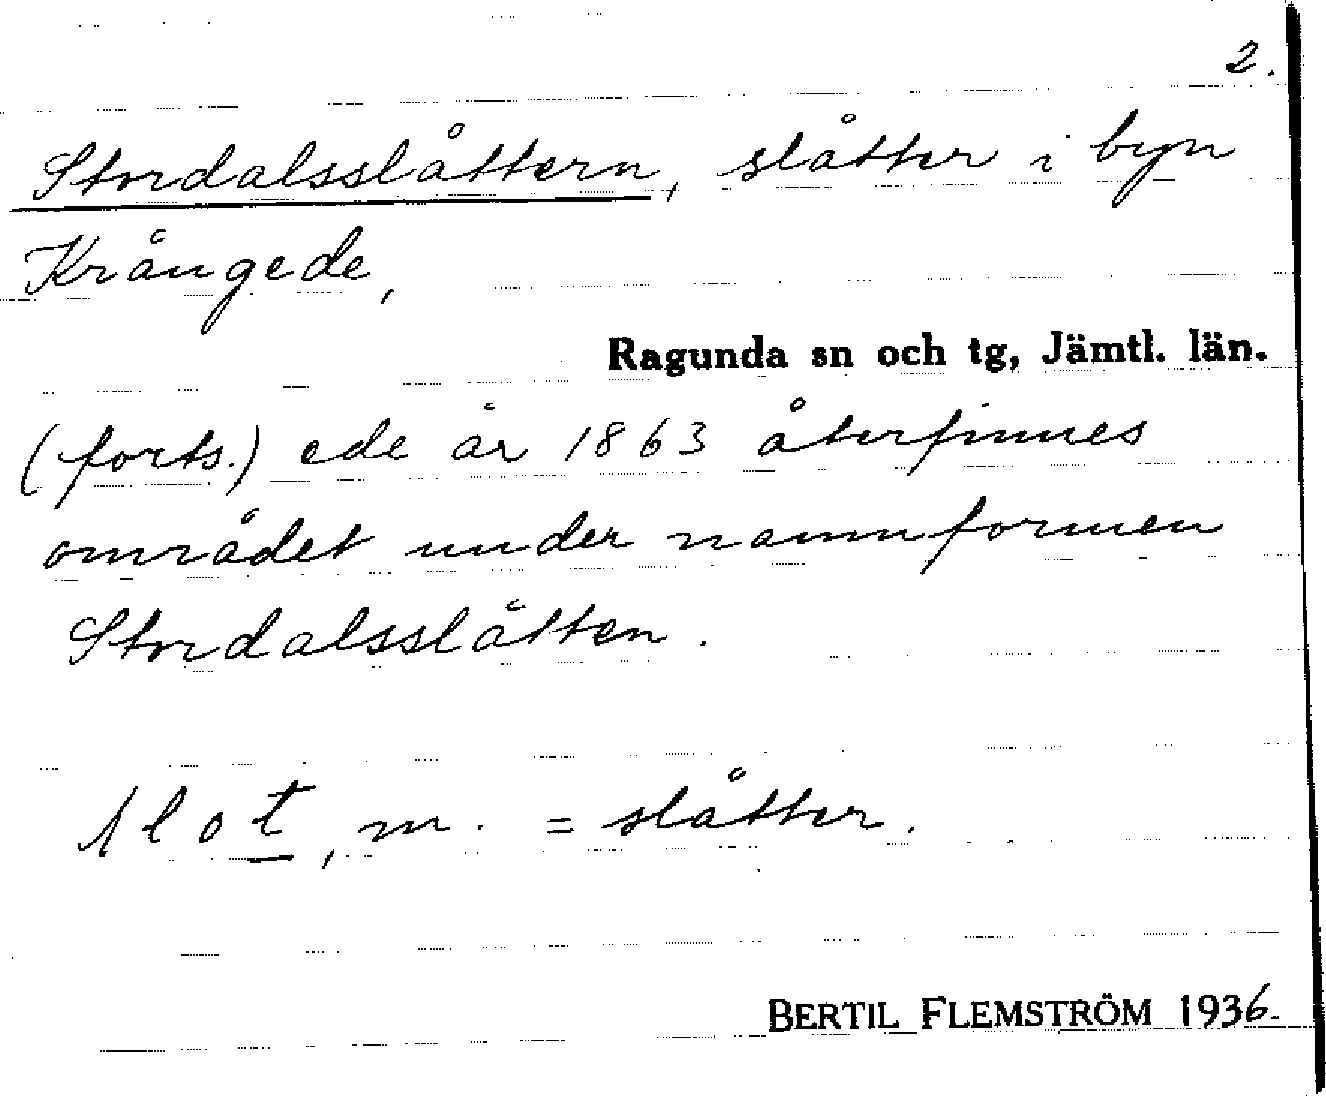 2.
Stordalsslåttern, slåtter i byn
Krångede,
Ragunda sn och tg, Jämtl. län.
(forts.) ede år 1863 återfinnes
området under namnformen
Stordalsslåtten.
slot, m. = slåtter.
BERTIL FLEMSTRÖM 1936.